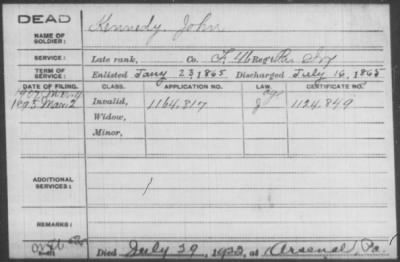 DEAD
NAME OF SOLDIER: Kennedy, John
SERVICE: Late rank, Co. F, 46 Reg't Pa. Inf
TERM OF SERVICE: Enlisted Jany 23, 1865 Discharged July 16, 1865
DATE OF FILING. CLASS. APPLICATION NO. LAW. CERTIFICATE NO.
1895 Mar. 2 Invalid, 1164,817 1124,849
Widow,
Minor,
ADDITIONAL SERVICES:
REMARKS:
Died July 29, 1922, at Arsenal, Pa.